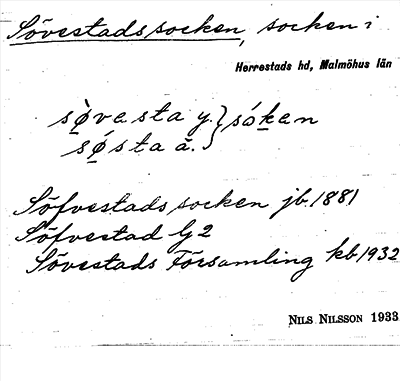 Sövestads socken, socken i
Herrestads hd, Malmöhus län
sø̀vesta y. } sóken
sǿsta ä.
Söfvestads socken jb. 1881
Söfvestad G2
Sövestads Församling kb 1932
NILS NILSSON 1933